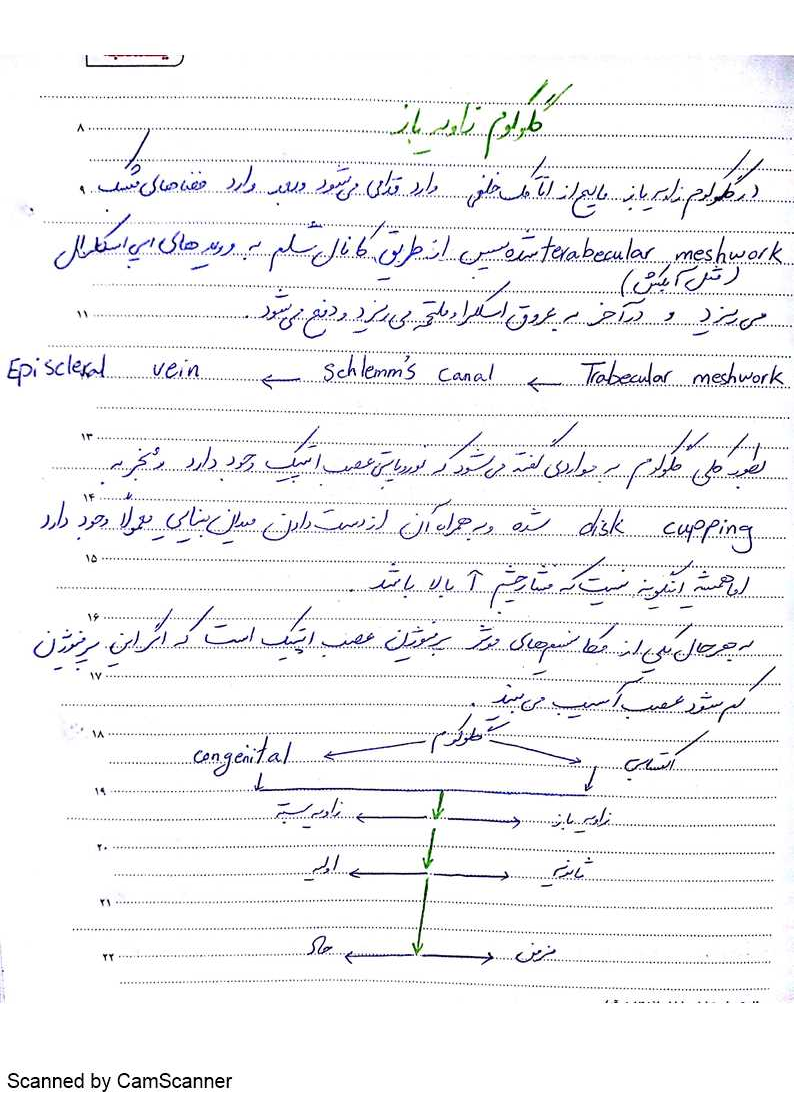 گلوکوم زاویه باز
۸
در گلوکوم زاویه باز مایع از اتاقک خلفی وارد قدامی می‌شود و بعد وارد فضاهای مشبک
۹
terabecular meshwork شده سپس از طریق کانال شلم به وریدهای اپی اسکلرال
(مثل آبکش)
می‌ریزد و در آخر به عروق اسکلرا و ملتحمه می‌ریزد و دفع می‌شود.
۱۱
Trabecular meshwork ← Schlemm's canal ← Episcleral vein
۱۳
بطور کلی گلوکوم به مواردی گفته می‌شود که نوروپاتی عصب اپتیک وجود دارد و منجر به
۱۴
disk cupping شده و به همراه آن از دست دادن میدان بینایی معمولاً وجود دارد
۱۵
اما همیشه اینگونه نیست که فشار چشم آ بالا باشد.
۱۶
به هر حال یکی از مکانیسم‌های موثر پرفیوژن عصب اپتیک است که اگر این پرفیوژن
۱۷
کم شود عصب آسیب می‌بیند.
۱۸
گلوکوم
اکتسابی congenital
۱۹
زاویه باز ←→ زاویه بسته
۲۰
ثانویه ←→ اولیه
۲۱
۲۲
مزمن ←→ حاد
Scanned by CamScanner